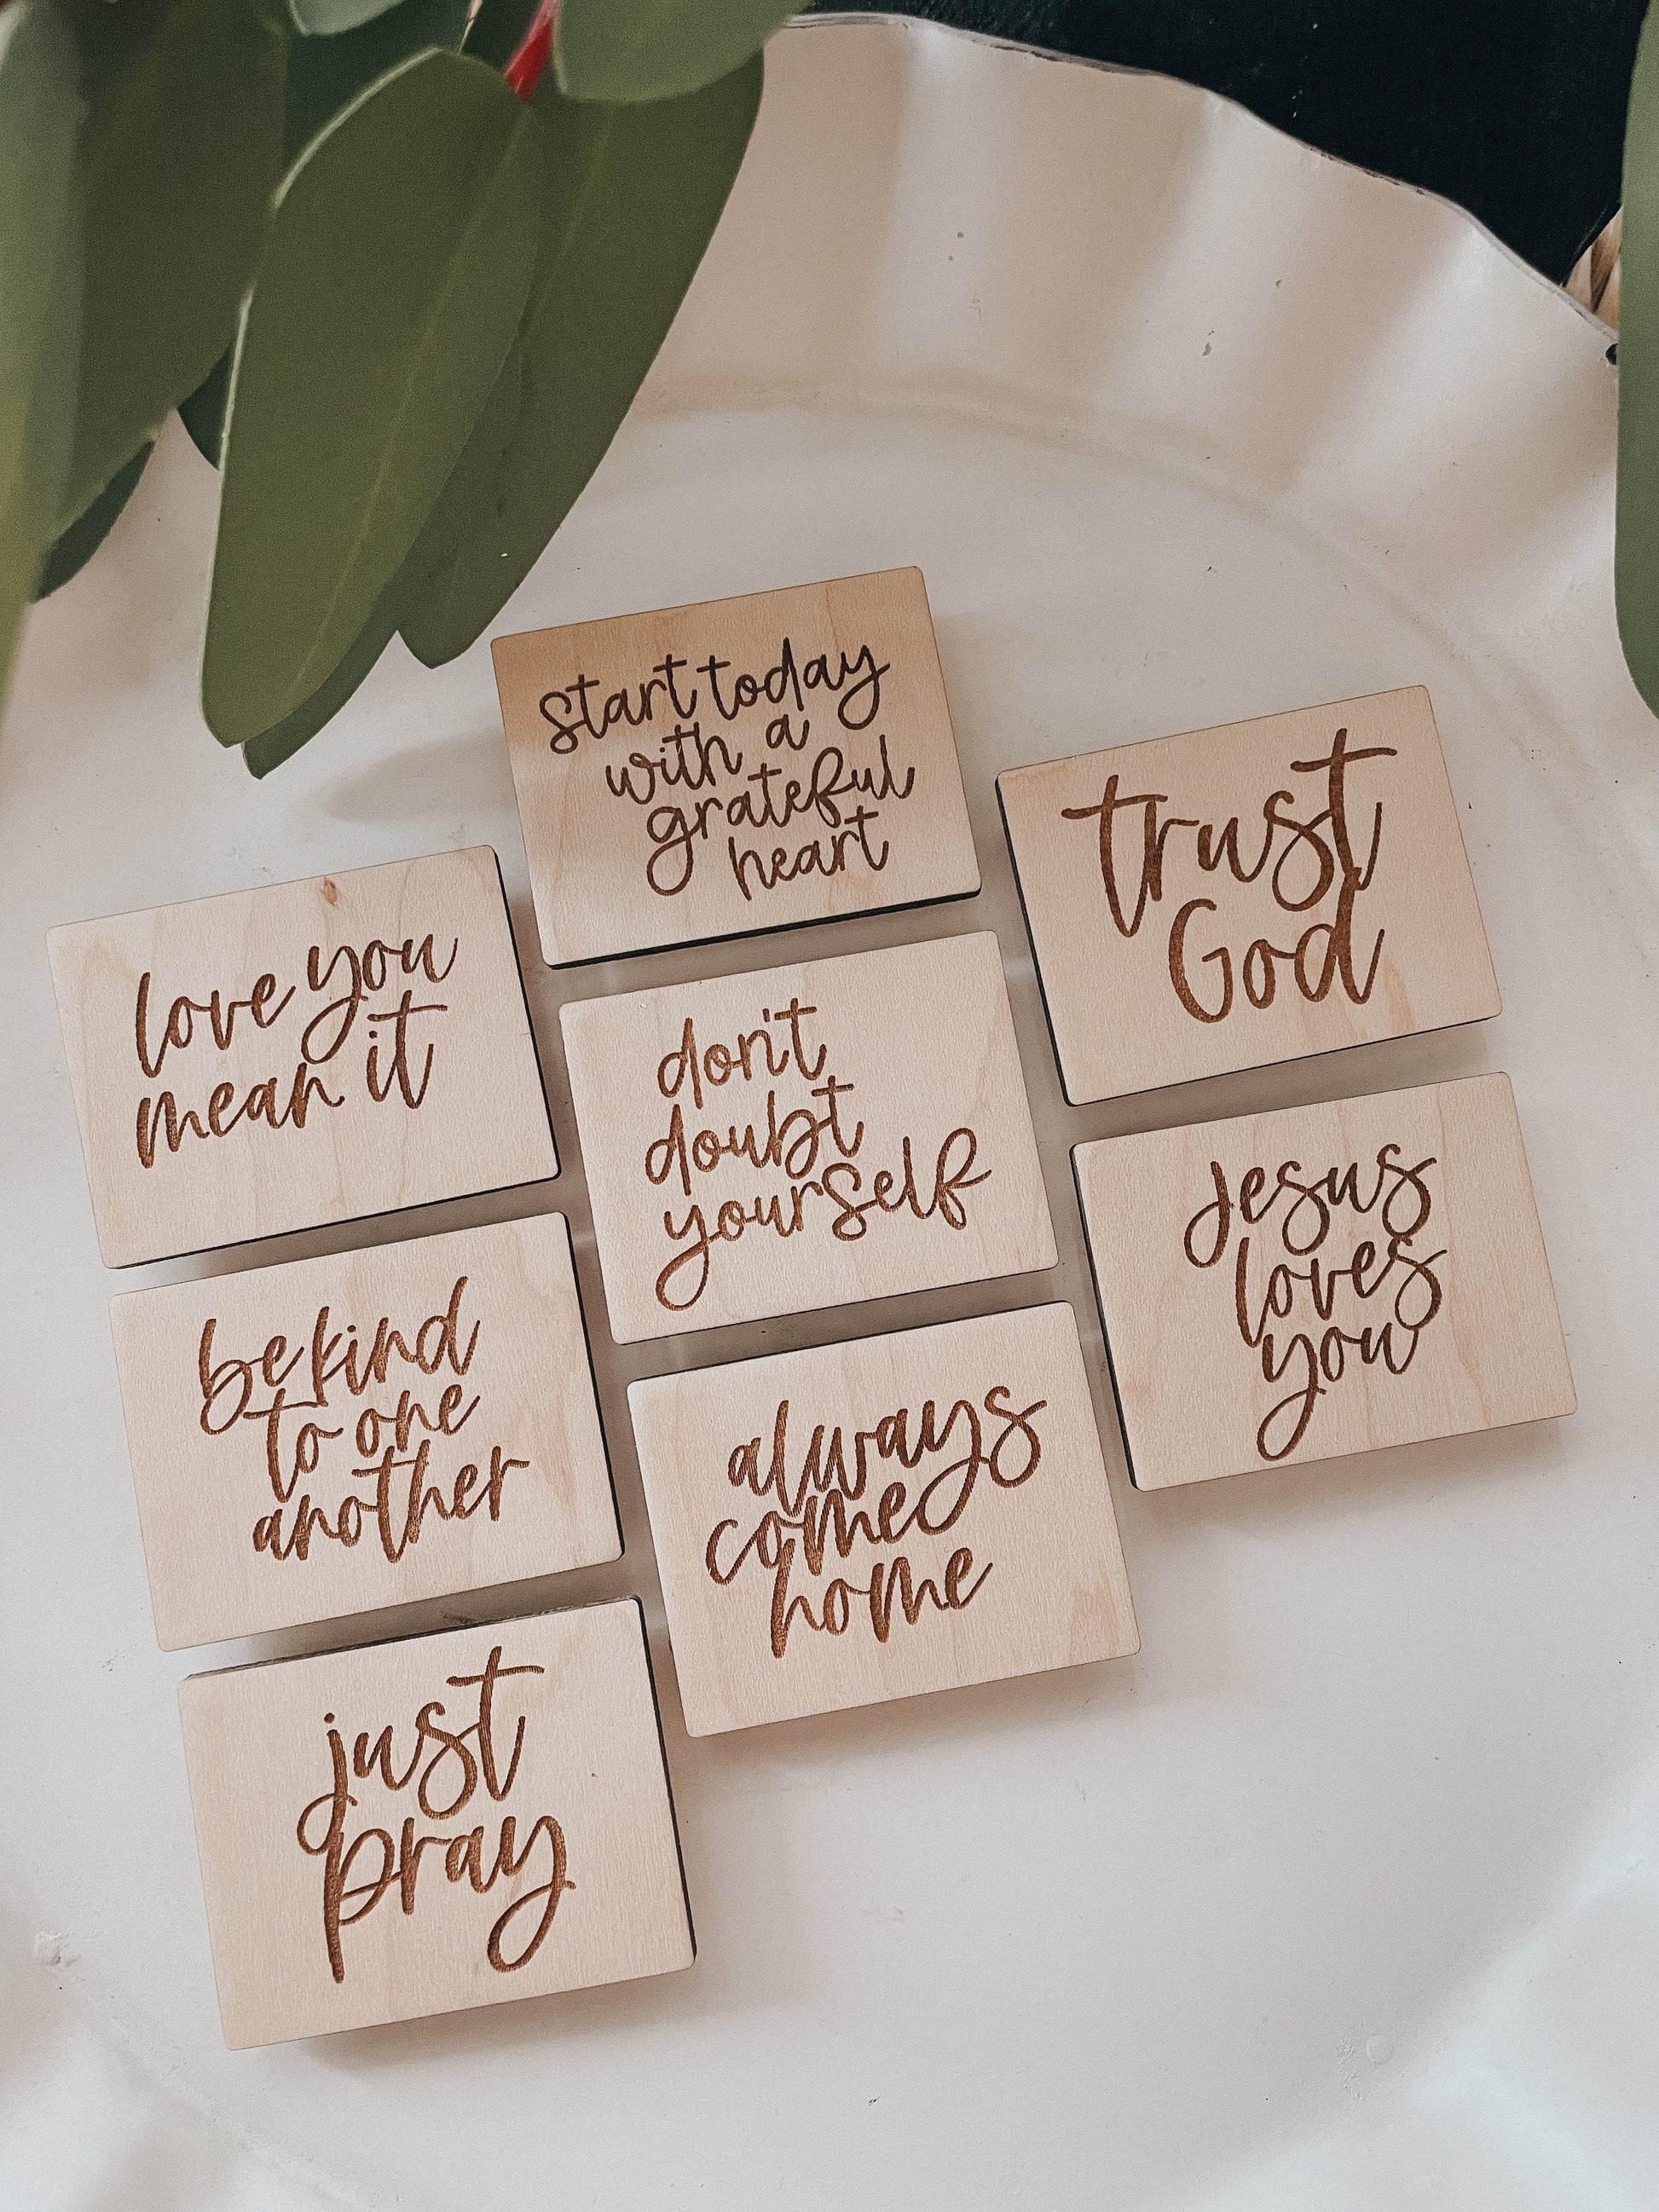 start today
with a
grateful
heart
trust
God
love you
mean it
don't
doubt
yourself
Jesus
loves
you
be kind
to one
another
always
come
home
just
pray